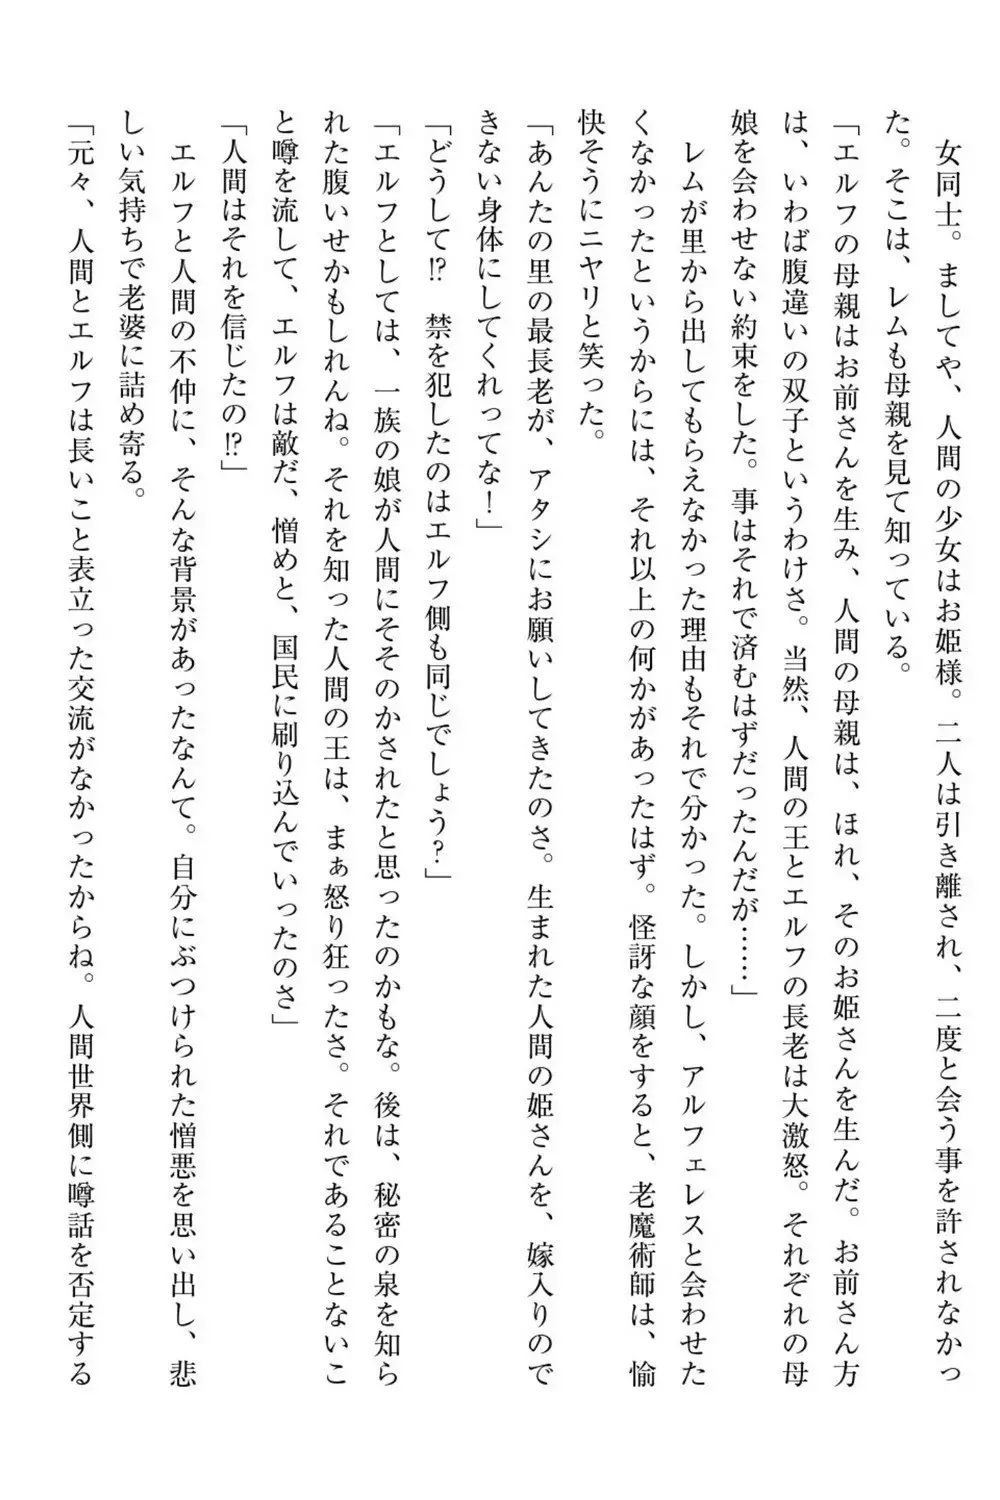 女同士。ましてや、人間の少女はお姫様。二人は引き離され、二度と会う事を許されなかっ
た。そこは、レムも母親を見て知っている。
「エルフの母親はお前さんを生み、人間の母親は、ほれ、そのお姫さんを生んだ。お前さん方
は、いわば腹違いの双子というわけさ。当然、人間の王とエルフの長老は大激怒。それぞれの母
娘を会わせない約束をした。事はそれで済むはずだったんだが……」
レムが里から出してもらえなかった理由もそれで分かった。しかし、アルフェレスと会わせた
くなかったというからには、それ以上の何かがあったはず。怪訝な顔をすると、老魔術師は、愉
快そうにニヤリと笑った。
「あんたの里の最長老が、アタシにお願いしてきたのさ。生まれた人間の姫さんを、嫁入りので
きない身体にしてくれってな！」
「どうして⁉　禁を犯したのはエルフ側も同じでしょう？」
「エルフとしては、一族の娘が人間にそそのかされたと思ったのかもな。後は、秘密の泉を知ら
れた腹いせかもしれんね。それを知った人間の王は、まぁ怒り狂ったさ。それであることないこ
と噂を流して、エルフは敵だ、憎めと、国民に刷り込んでいったのさ」
「人間はそれを信じたの⁉」
エルフと人間の不仲に、そんな背景があったなんて。自分にぶつけられた憎悪を思い出し、悲
しい気持ちで老婆に詰め寄る。
「元々、人間とエルフは長いこと表立った交流がなかったからね。人間世界側に噂話を否定する